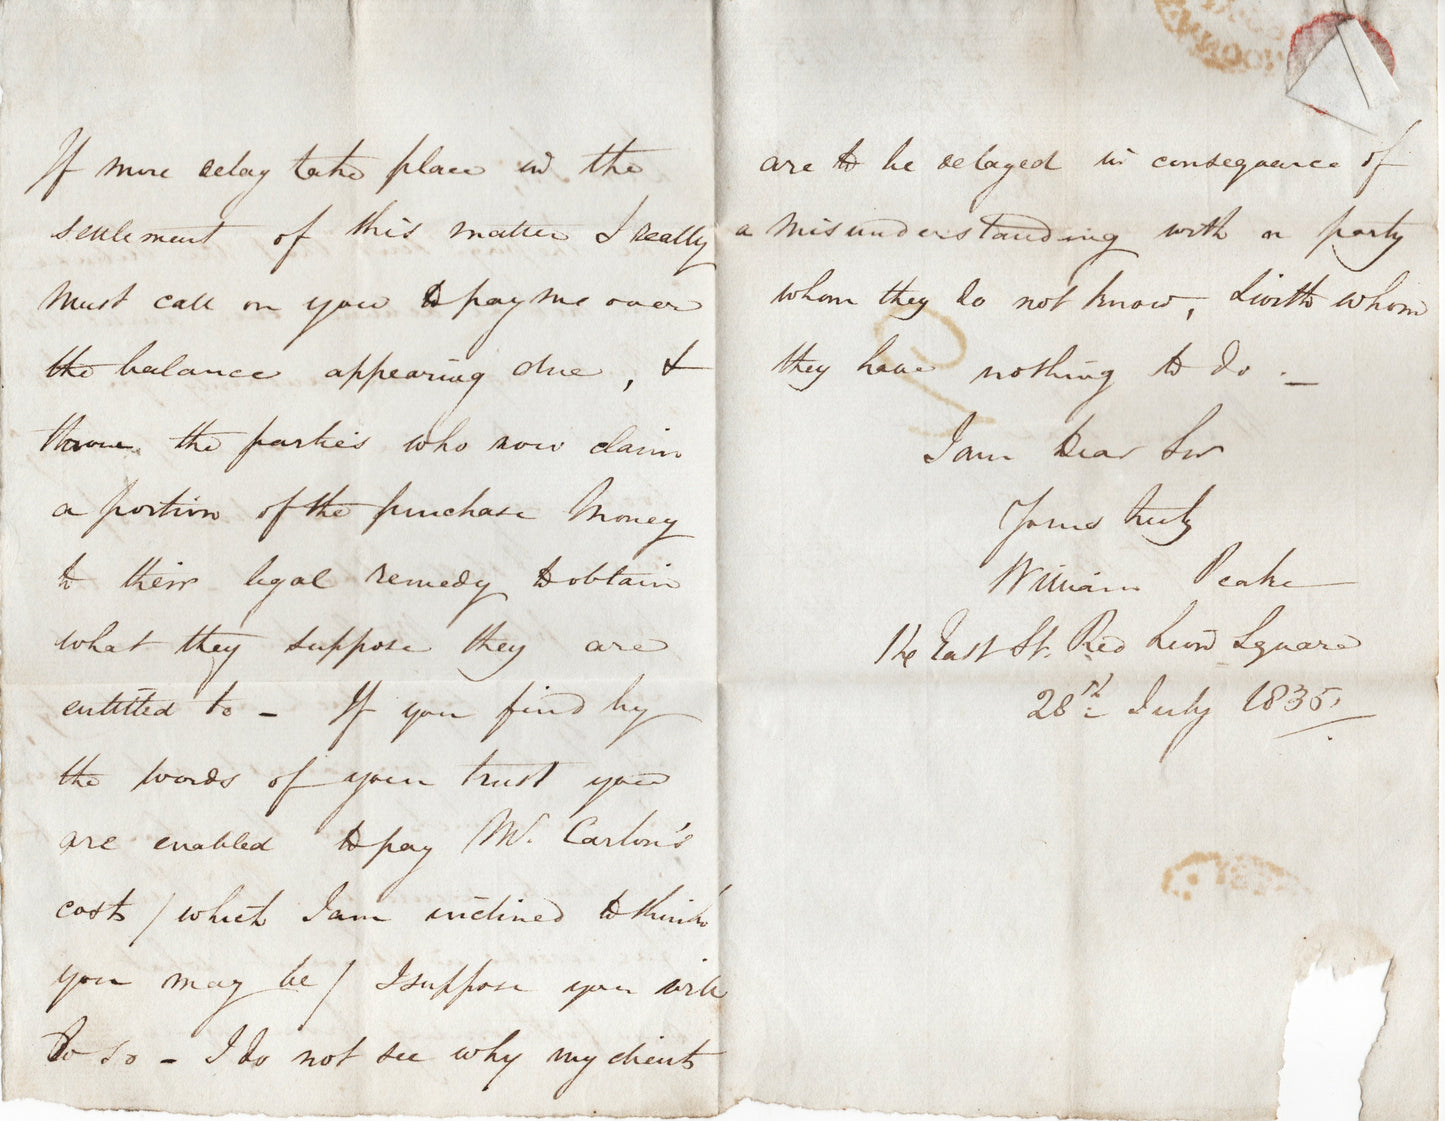 If more delay take place in the
settlement of this matter I really
must call on you to pay me over
the balance appearing due, &
throw the parties who now claim
a portion of the purchase money
to their legal remedy to obtain
what they suppose they are
entitled to - If you find by
the words of your trust you
are enabled to pay Mr. Carlon's
costs / which I am inclined to think
you may be / I suppose you will
do so - I do not see why my clients
are to be delayed in consequence of
a misunderstanding with a party
whom they do not know, & with whom
they have nothing to do. -
I am Dear Sir
Yours truly
William Peake
East St. Red Lion Square
28th July 1835.